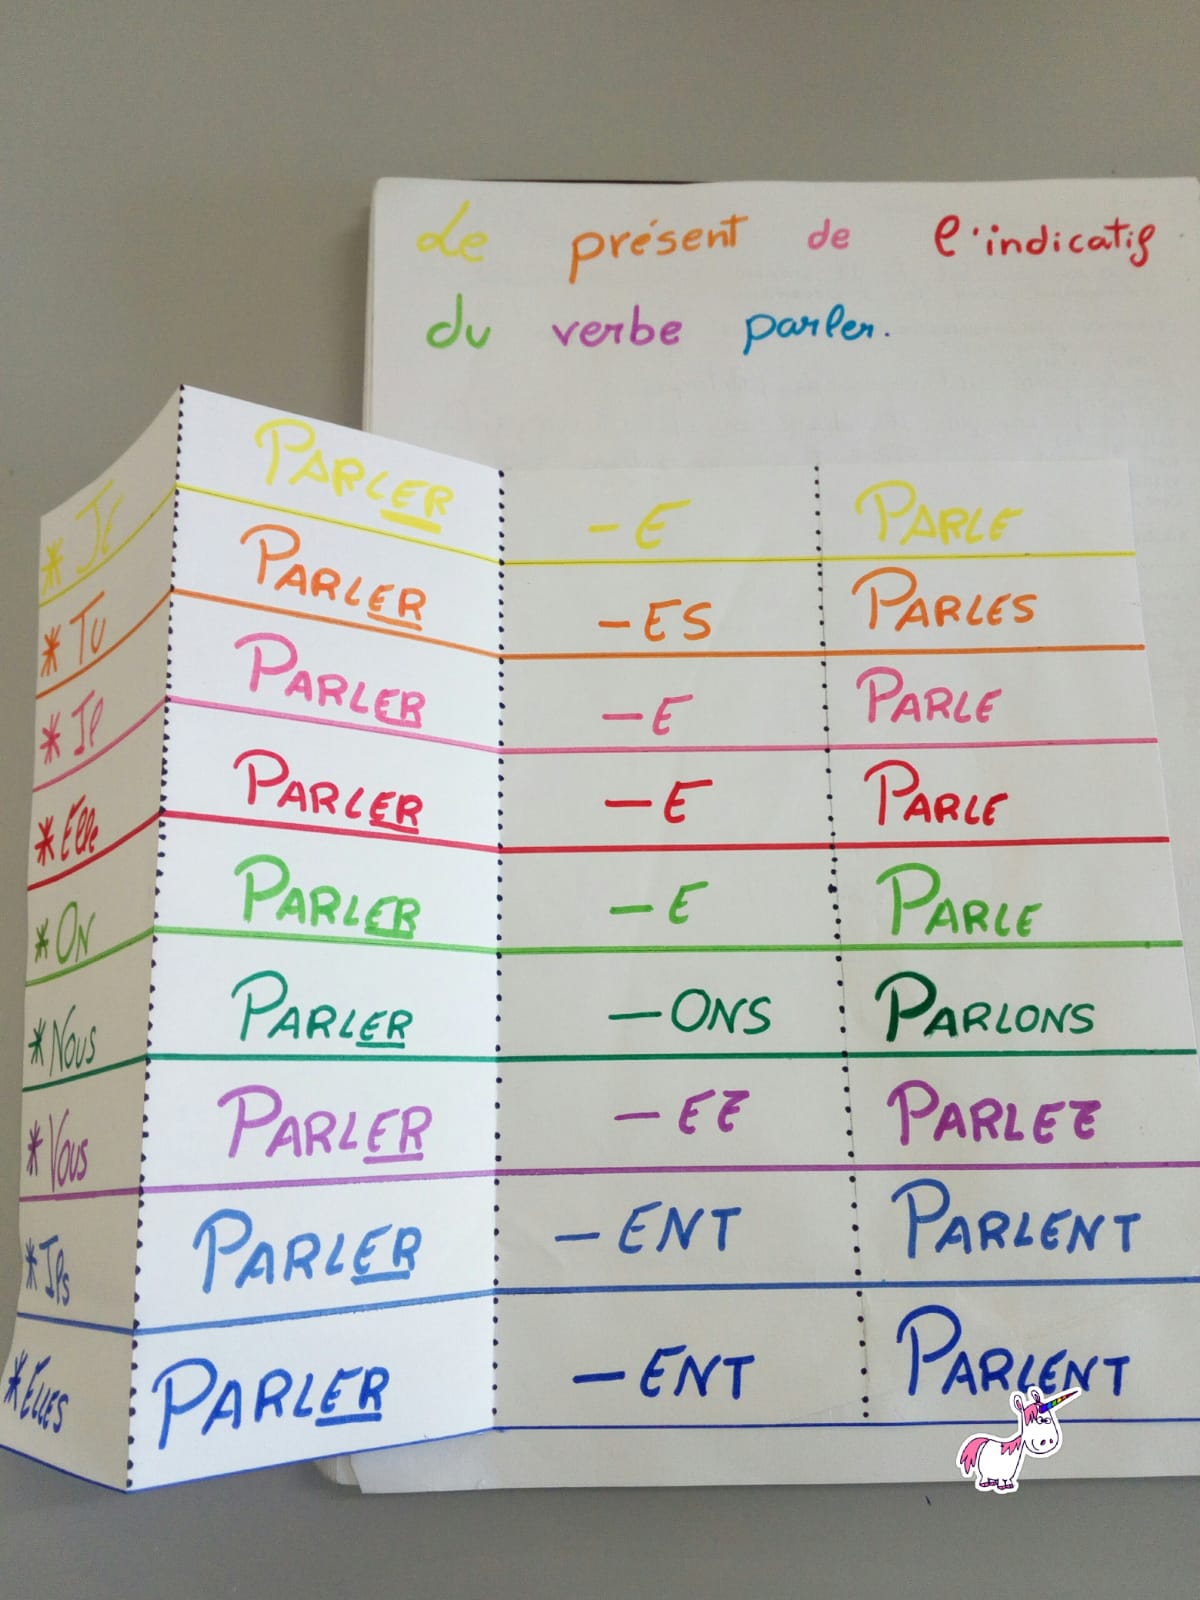 Le présent de l'indicatif
du verbe parler.
* Je PARLER - E PARLE
* TU PARLER - ES PARLES
* Il PARLER - E PARLE
* Elle PARLER - E PARLE
* ON PARLER - E PARLE
* NOUS PARLER - ONS PARLONS
* VOUS PARLER - EZ PARLEZ
* Ils PARLER - ENT PARLENT
* ELLES PARLER - ENT PARLENT